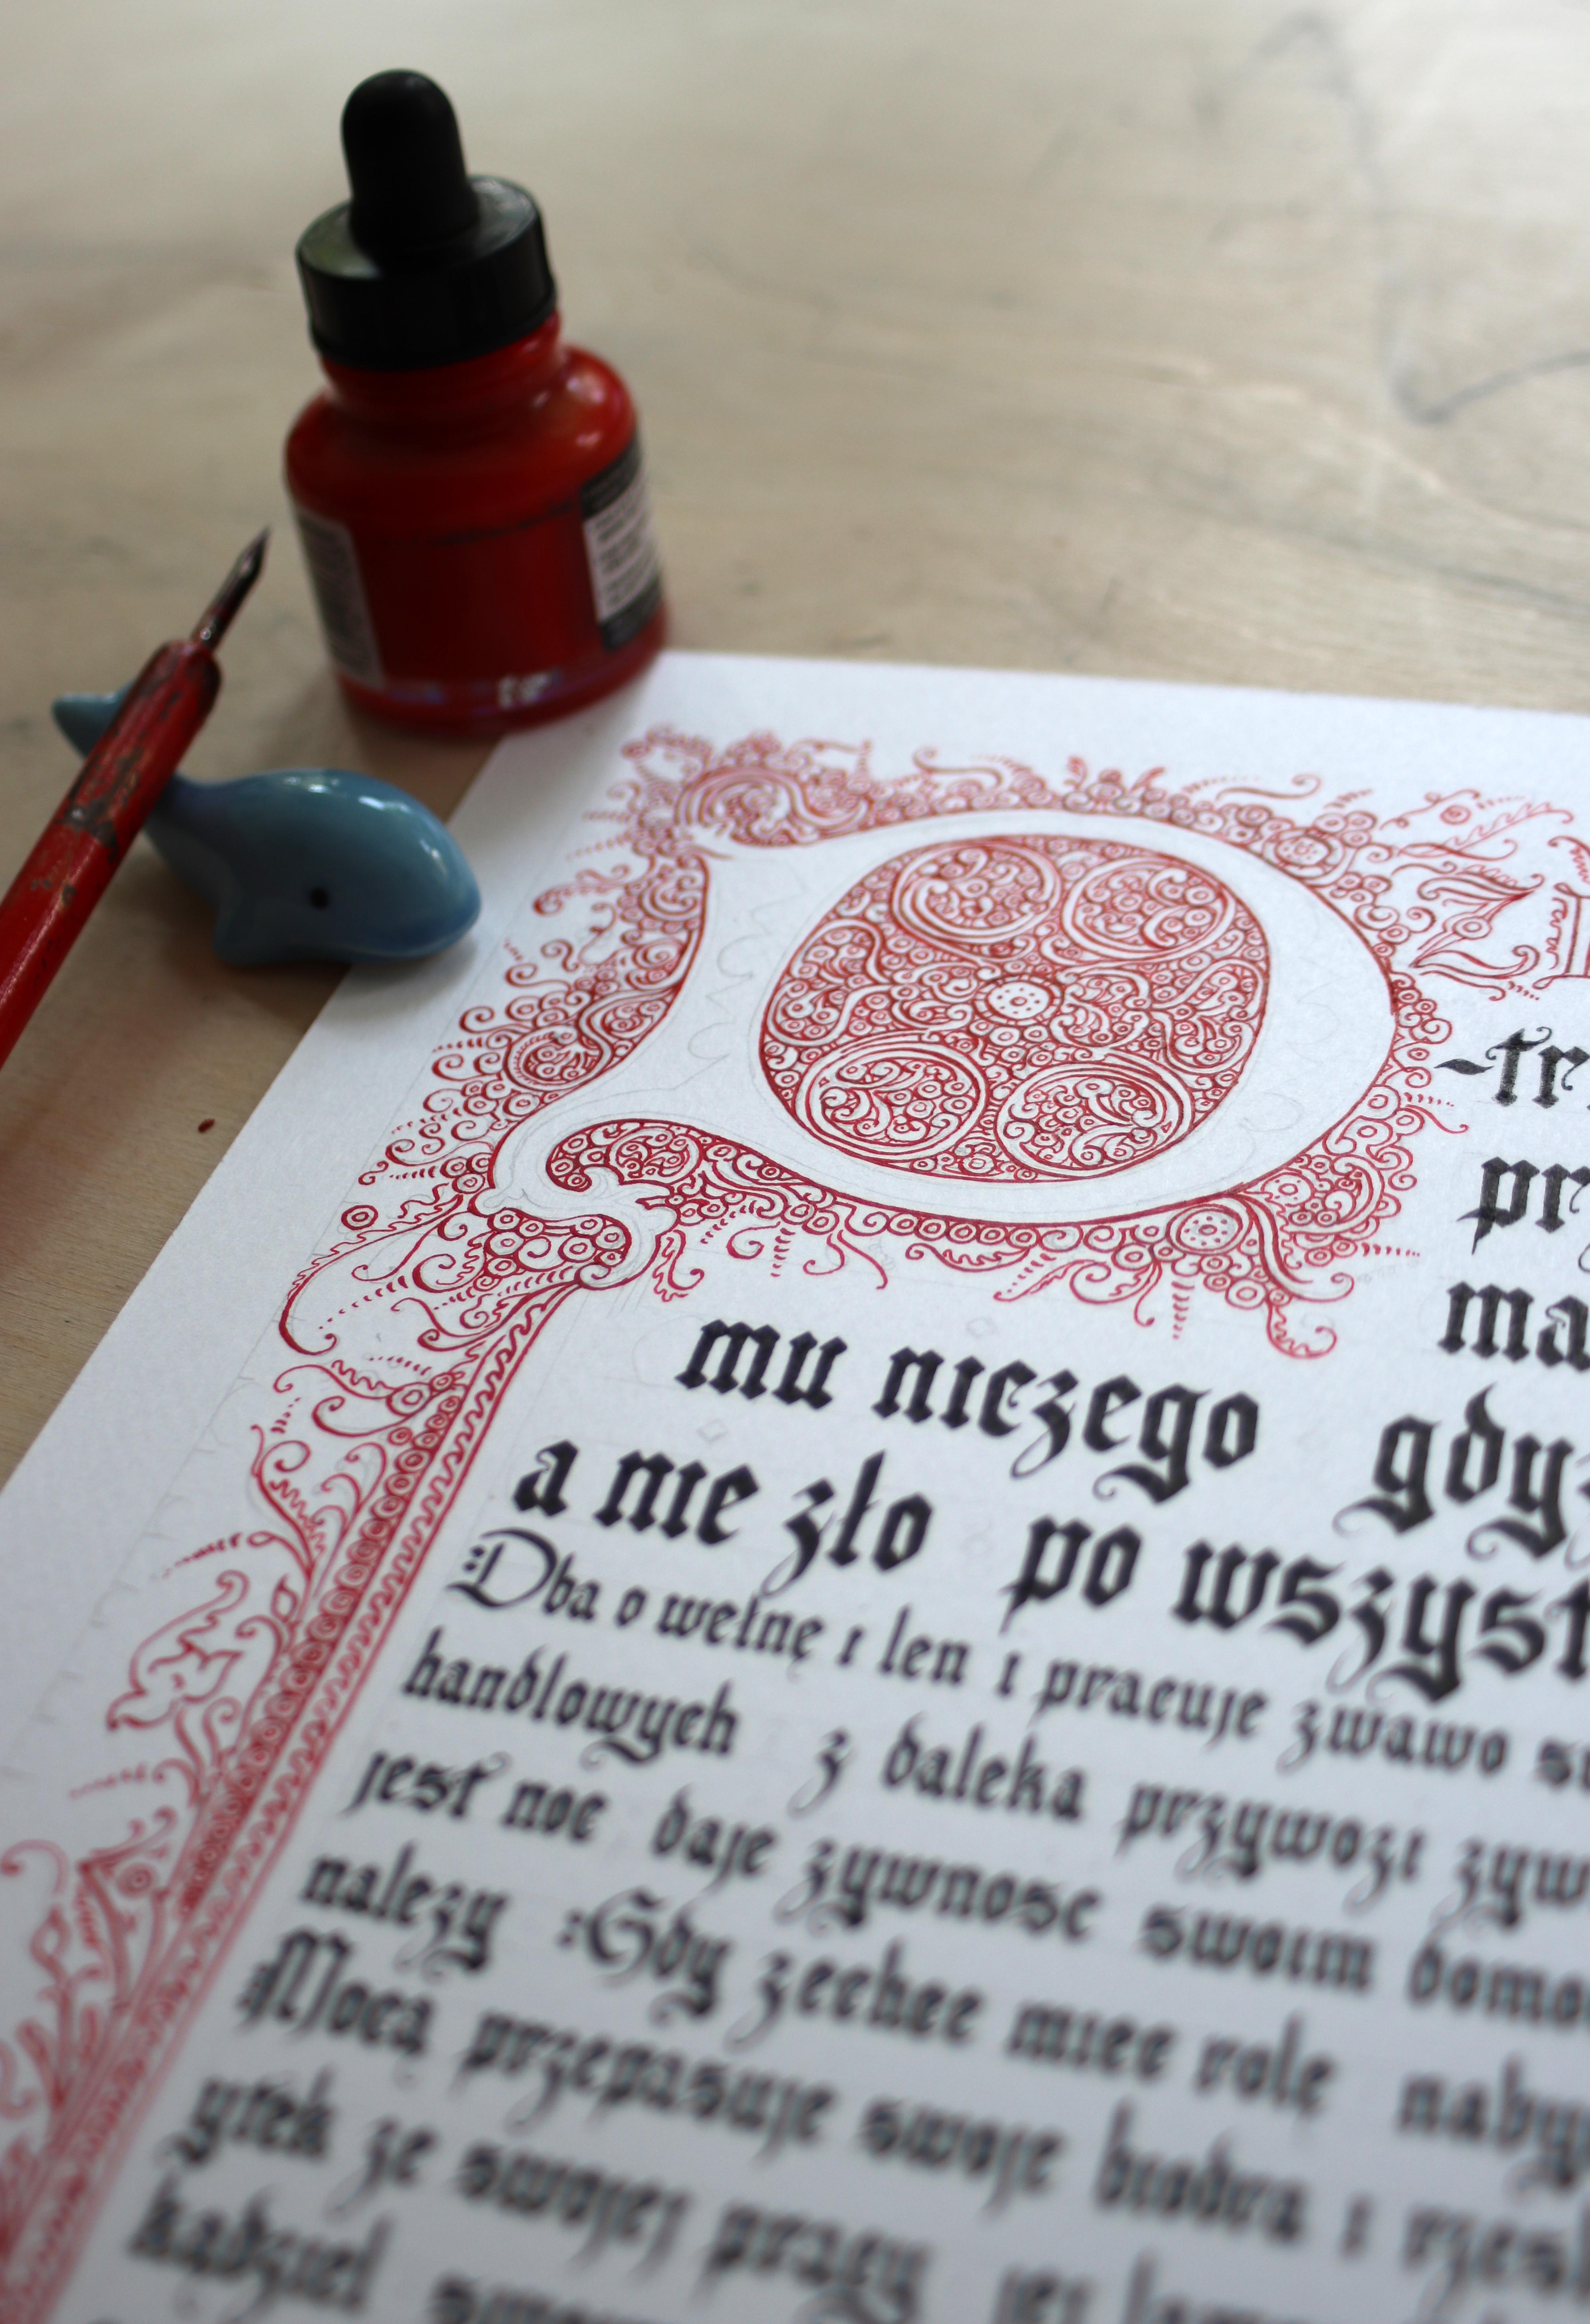 D
-tr
pr
ma
mu niczego gdy
a nie zło po wszyst
:Dba o wełnę ı len ı pracuje zwawo
handlowych z daleka przywozı zyw
jest noc daje zywnosc swoım domo
nalezy :Gdy zechce mıec rolę naby
Mocą przepasuje swoje bıodra ı
ytek ze swojej pracy jej
kądzıel